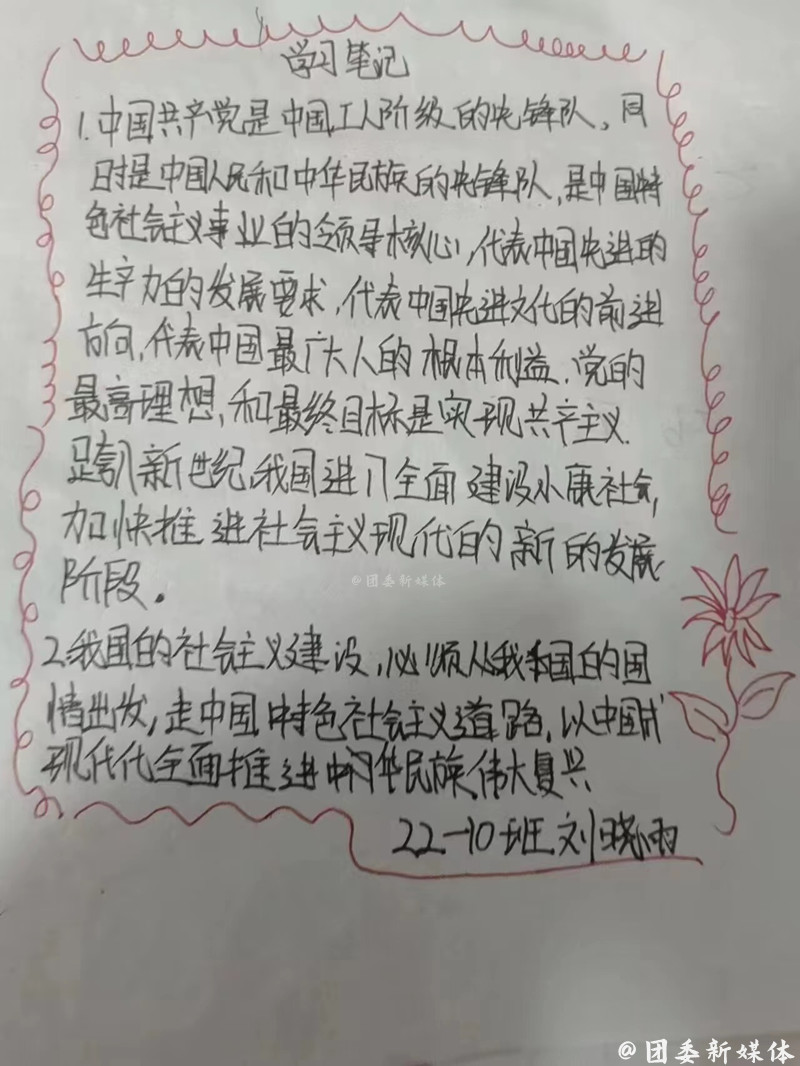 学习笔记
1.中国共产党是中国工人阶级的先锋队，同
时是中国人民和中华民族的先锋队，是中国特
色社会主义事业的领导核心，代表中国先进的
生产力的发展要求，代表中国先进文化的前进
方向，代表中国最广大人的根本利益．党的
最高理想，和最终目标是实现共产主义．
跨入新世纪，我国进入全面建设小康社会，
加快推进社会主义现代的新的发展
阶段。
@团委新媒体
2.我国的社会主义建设，必须从我本国的国
情出发，走中国特色社会主义道路，以中国式
现代代全面推进中华民族伟大复兴
22-10班刘晓雨
@团委新媒体